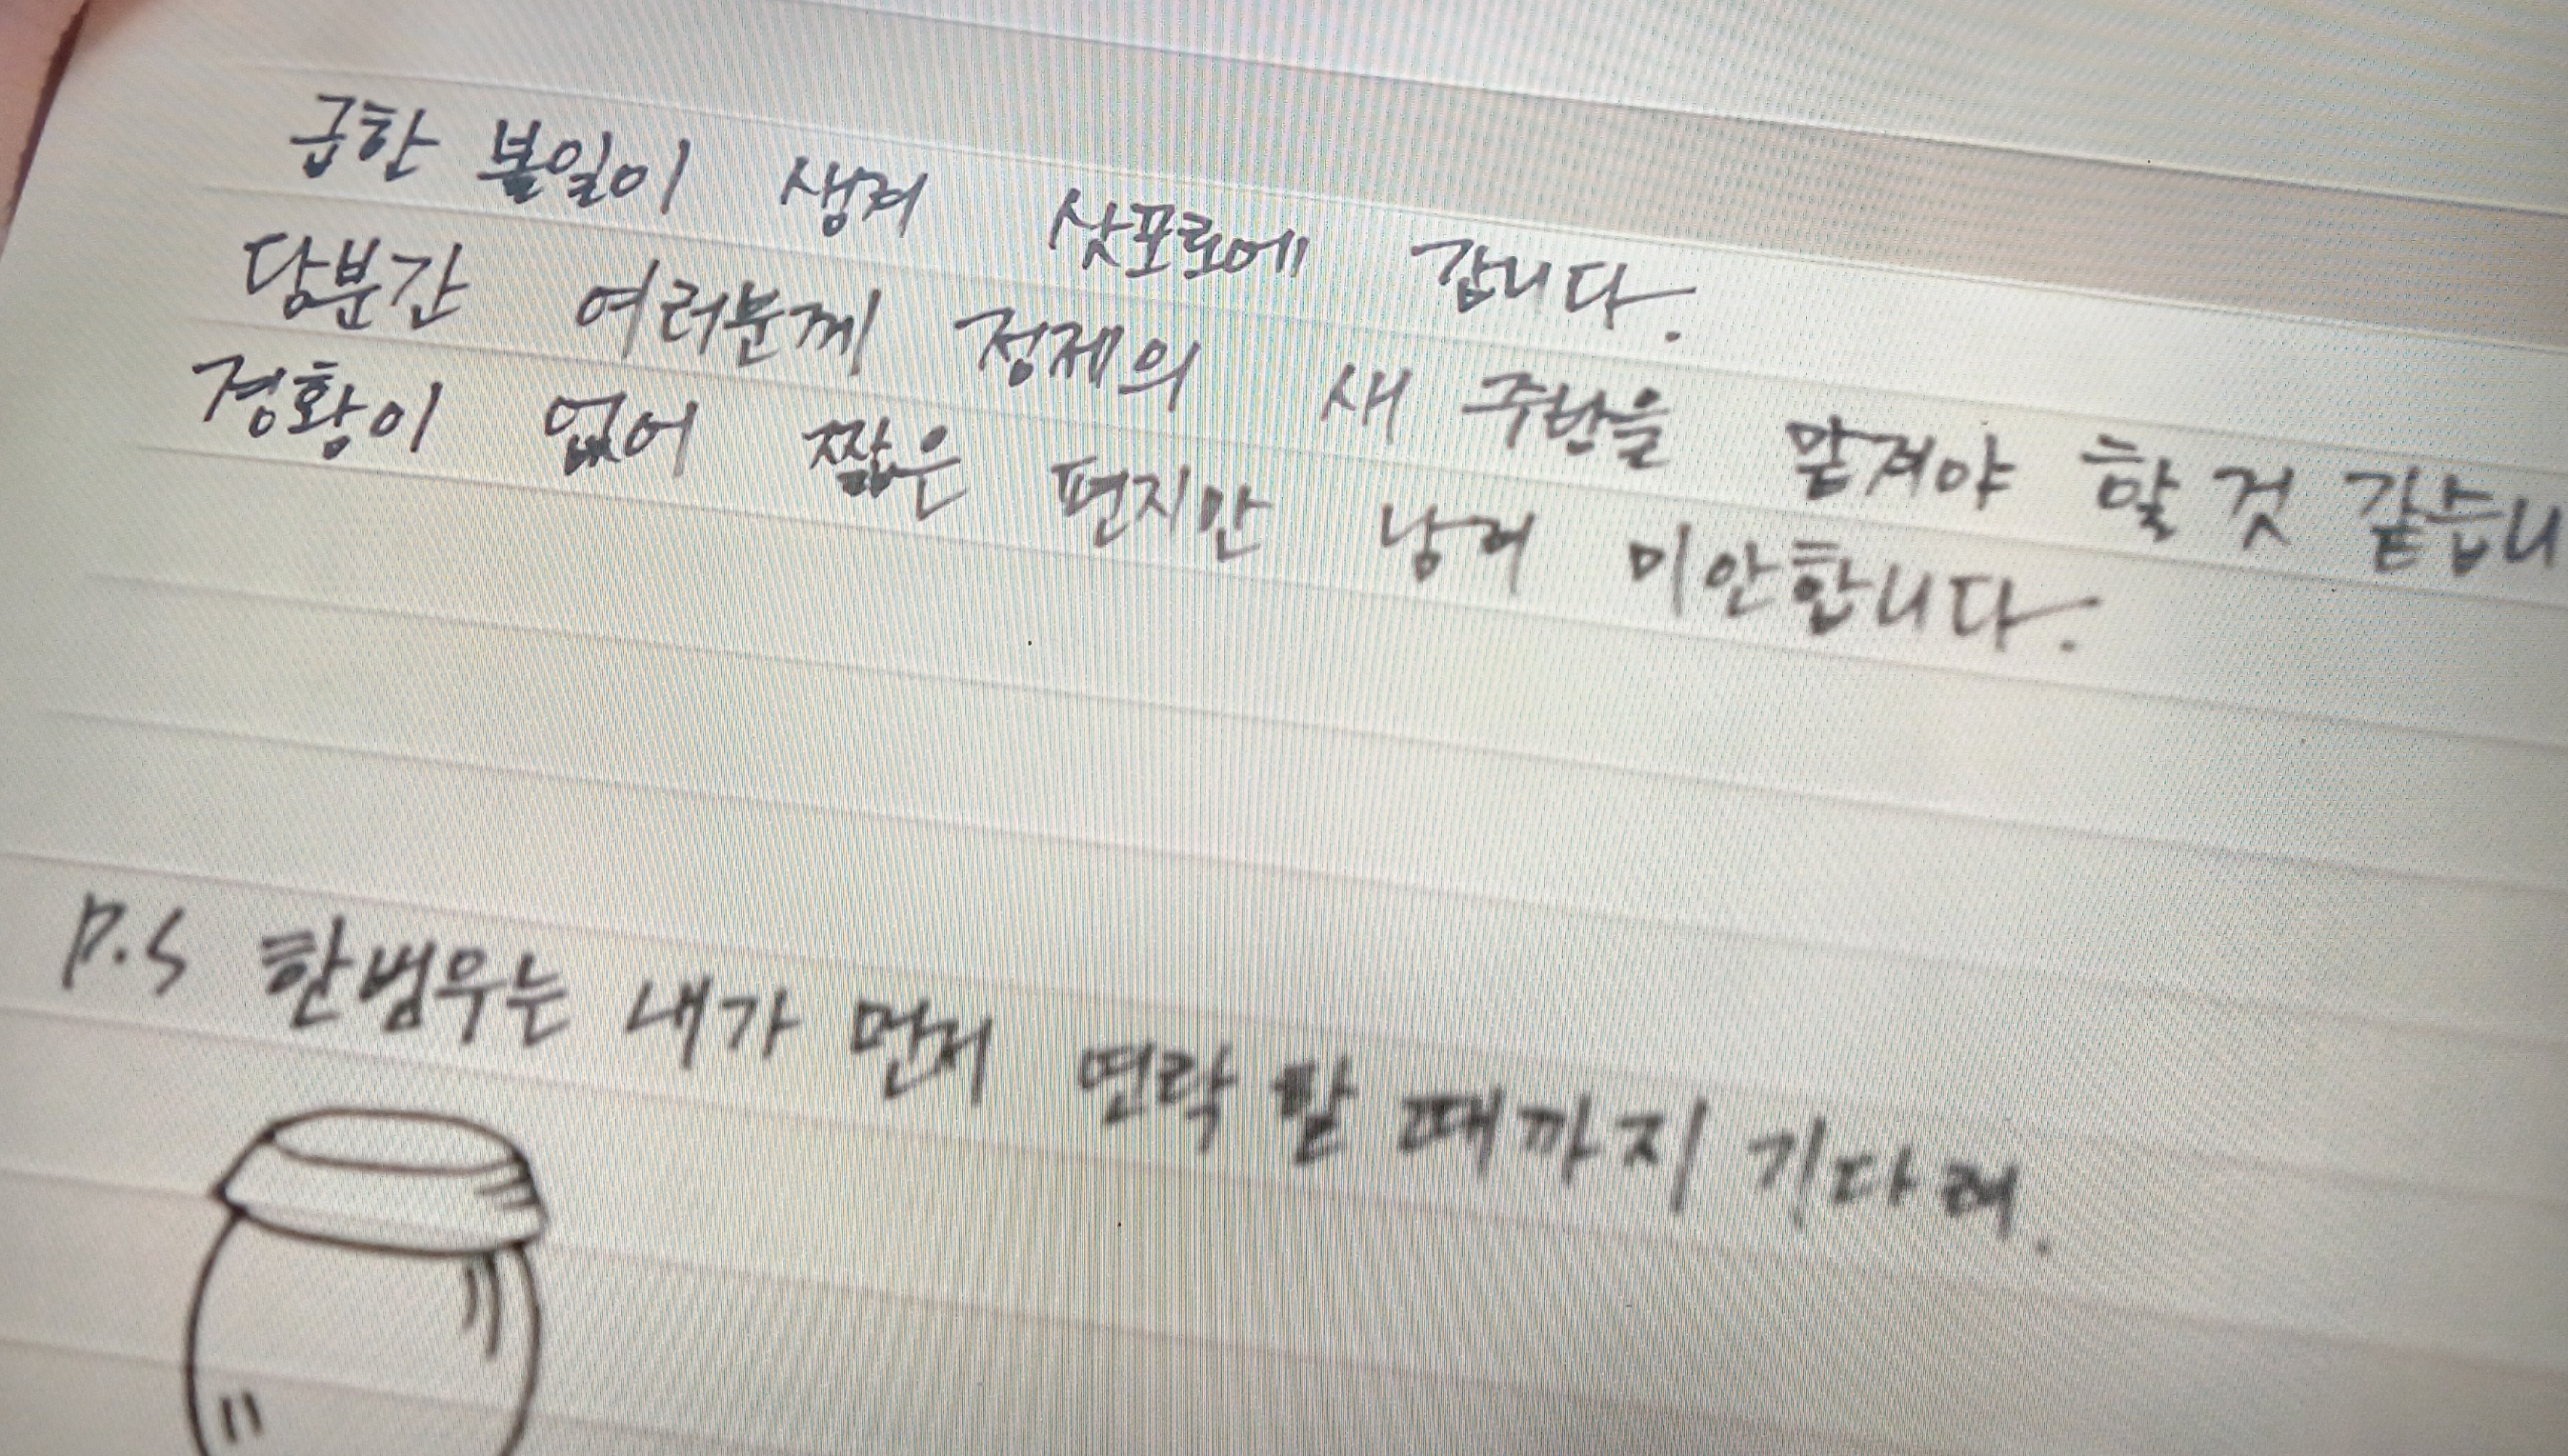 급한 볼일이 생겨 삿포로에 갑니다.
당분간 여러분께 정제의 새 주방을 맡겨야 할 것 같습니
경황이 없어 짧은 편지만 남겨 미안합니다.
P.S 한범우는 내가 먼저 연락 할 때까지 기다려.